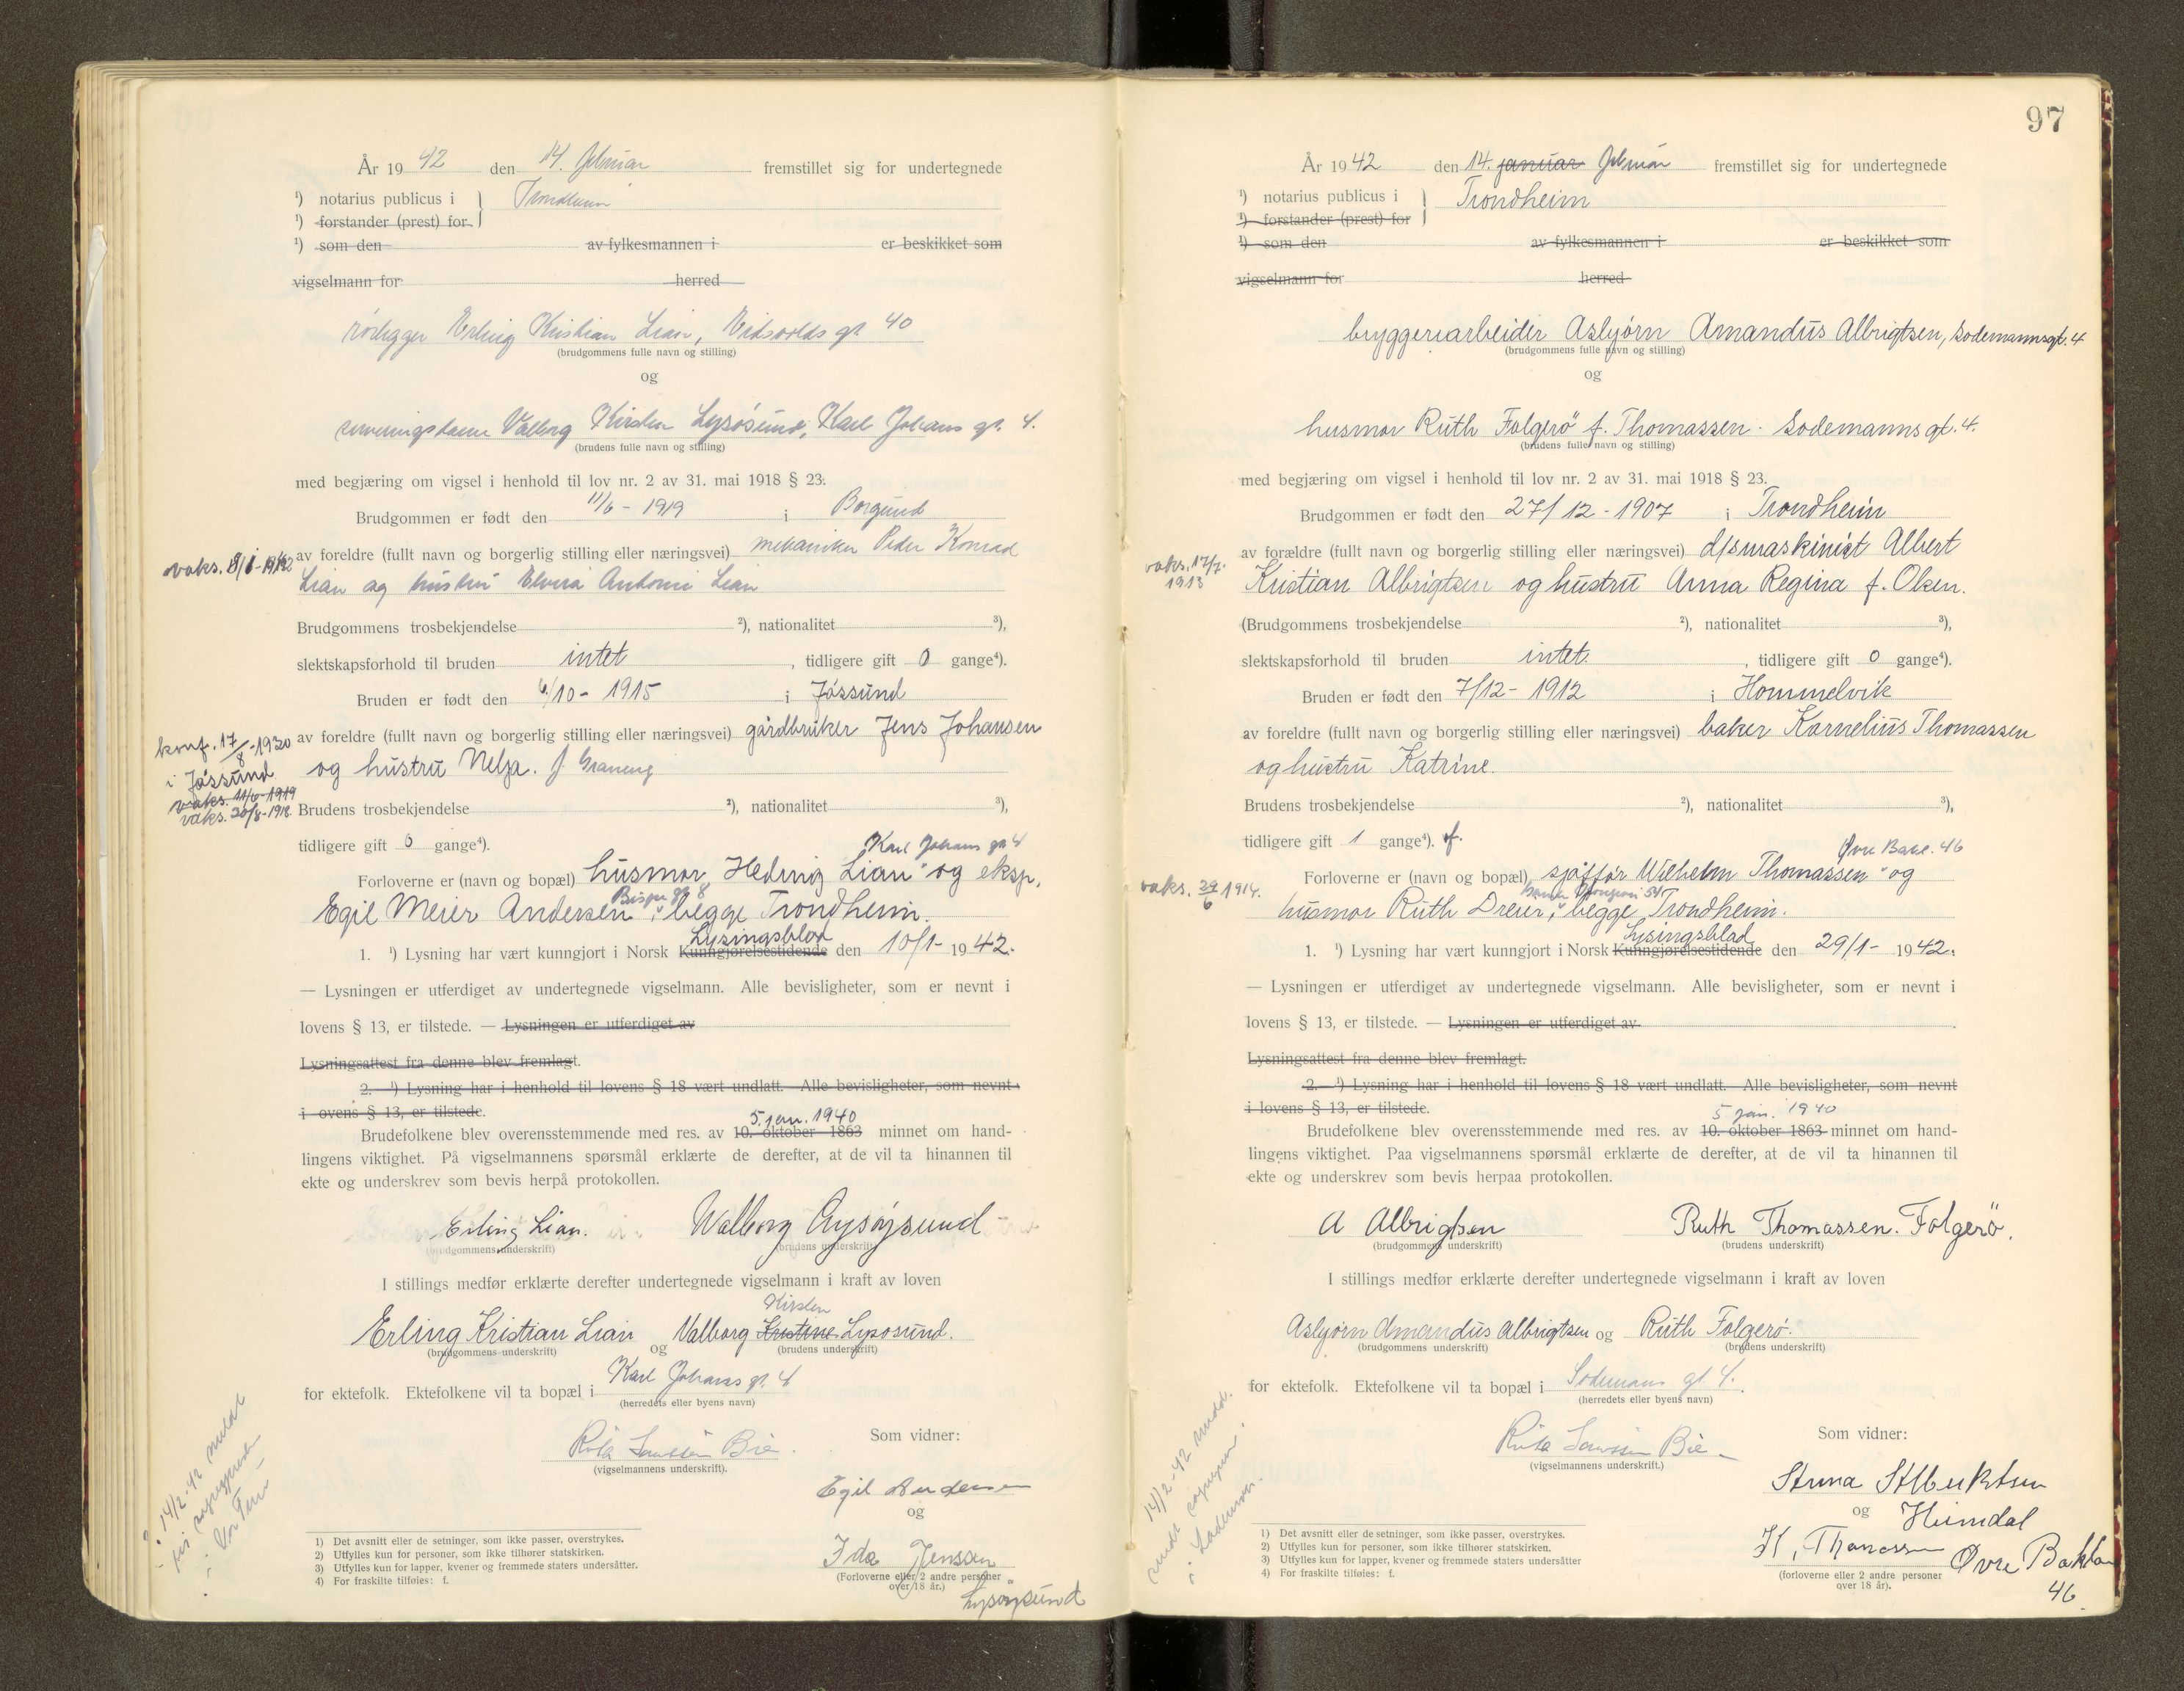 År 19 42 den 14. februar fremstillet sig for undertegnede
¹) notarius publicus i Trondheim
¹) forstander (prest) for
¹) som den av fylkesmannen i er beskikket som
vigselmann for herred
rørlegger Erling Kristian Lian, Eidsvolds gt 40
(brudgommens fulle navn og stilling)
og
serveringsdame Valborg Kirsten Lysøsund, Karl Johans gt. 4.
(brudens fulle navn og stilling)
med begjæring om vigsel i henhold til lov nr. 2 av 31. mai 1918 § 23.
Brudgommen er født den 11/6 - 1919 i Borgund
av foreldre (fullt navn og borgerlig stilling eller næringsvei) mekaniker Peder Konrad
Lian og hustru Elvira Antonie Lian
Brudgommens trosbekjendelse ²), nationalitet ³),
slektskapsforhold til bruden intet, tidligere gift 0 gange⁴).
Bruden er født den 6/10 - 1915 i Jøssund
av foreldre (fullt navn og borgerlig stilling eller næringsvei) gårdbruker Jens Johansen
konf. 17/8 - 1930
i Jøssund
vaks. 11/6 - 1919
og hustru Nelja. f
Brudens trosbekjendelse ²), nationalitet ³),
tidligere gift 0 gange⁴).
Karl Johans gt 4
Forloverne er (navn og bopæl) husmor Hedvig Lian og eksp.
Egil Meier Andersen, begge Trondheim.
Lysingsblad
1. ¹) Lysning har vært kunngjort i Norsk Kunngjørelsestidende den 10/1- 1942.
— Lysningen er utferdiget av undertegnede vigselmann. Alle bevisligheter, som er nevnt i
lovens § 13, er tilstede. — Lysningen er utferdiget av
Lysningsattest fra denne blev fremlagt.
2. ¹) Lysning har i henhold til lovens § 18 vært undlatt. Alle bevisligheter, som nevnt
i ovens § 13, er tilstede.
5. jan. 1940
Brudefolkene blev overensstemmende med res. av 10. oktober 1863 minnet om hand-
lingens viktighet. På vigselmannens spørsmål erklærte de derefter, at de vil ta hinannen til
ekte og underskrev som bevis herpå protokollen.
Erling Lian. Walborg Lysøysund
(brudgommens underskrift) (brudens underskrift)
I stillings medfør erklærte derefter undertegnede vigselmann i kraft av loven
Kirsten
Erling Kristian Lian og Valborg Kristine Lysosund.
(brudgommens underskrift) (brudens underskrift)
for ektefolk. Ektefolkene vil ta bopæl i Karl Johans gt. 4
(herredets eller byens navn)
Som vidner:
(vigselmannens underskrift).
Egil Andersen
og
Ida Jenssen
(Forloverne eller 2 andre personer
over 18 år.)
Lysøysund
1) Det avsnitt eller de setninger, som ikke passer, overstrykes.
2) Utfylles kun for personer, som ikke tilhører statskirken.
3) Utfylles kun for lapper, kvener og fremmede staters undersåtter.
4) For fraskilte tilføies: f.
97
År 1942 den 14. januar februar fremstillet sig for undertegnede
¹) notarius publicus i Trondheim
¹) forstander (prest) for
¹) som den av fylkesmannen i er beskikket som
vigselmann for herred
bryggeriarbeider Asbjørn Amandus Albrigtsen, Sodemannsgt. 4
(brudgommens fulle navn og stilling)
og
husmor Ruth Folgerö f. Thomassen. Sodemanns gt. 4.
(brudens fulle navn og stilling)
med begjæring om vigsel i henhold til lov nr. 2 av 31. mai 1918 § 23.
Brudgommen er født den 27/12 - 1907 i Trondheim
av forældre (fullt navn og borgerlig stilling eller næringsvei) d/smaskinist Albert
vaks. 17/7-
1913
Kristian Albrigtsen og hustru Anna Regina f. Olsen.
(Brudgommens trosbekjendelse ²), nationalitet ³),
slektskapsforhold til bruden intet., tidligere gift 0 gange⁴).
Bruden er født den 7/12 - 1912 i Hommelvik
av foreldre (fullt navn og borgerlig stilling eller næringsvei) baker Kornelius Thomassen
og hustru Katrine.
Brudens trosbekjendelse ²), nationalitet ³),
tidligere gift 1 gange⁴). f.
Forloverne er (navn og bopæl) sjåffør Wilhelm Thomassen og
vaks. 29/6 1914.
husmor Ruth Dreier, begge Trondheim.
Lysingsblad
1. ¹) Lysning har vært kunngjort i Norsk Kunngjørelsestidende den 29/1- 1942.
— Lysningen er utferdiget av undertegnede vigselmann. Alle bevisligheter, som er nevnt i
lovens § 13, er tilstede. — Lysningen er utferdiget av
Lysningsattest fra denne blev fremlagt.
2. ¹) Lysning har i henhold til lovens § 18 vært undlatt. Alle bevisligheter, som nevnt
i lovens § 13, er tilstede.
5. jan. 1940
Brudefolkene blev overensstemmende med res. av 10. oktober 1863 minnet om hand-
lingens viktighet. Paa vigselmannens spørsmål erklærte de derefter, at de vil ta hinannen til
ekte og underskrev som bevis herpaa protokollen.
A Albrigtsen Ruth Thomassen. Folgerö.
(brudgommens underskrift) (brudens underskrift)
I stillings medfør erklærte derefter undertegnede vigselmann i kraft av loven
Asbjørn Amandus Albrigtsen og Ruth Folgerö.
(brudgommens underskrift) (brudens underskrift)
for ektefolk. Ektefolkene vil ta bopæl i Sodemans gt 4.
(herredets eller byens navn)
Som vidner:
(vigselmannens underskrift.)
og Heimdal
Øvre Bakla
(forloverne eller 2 andre personer
over 18 år).
46.
1) Det avsnitt eller de setninger, som ikke passer, overstrykes.
2) Utfylles kun for personer, som ikke tilhører statskirken.
3) Utfylles kun for lapper, kvener og fremmede staters undersåtter
4) For fraskilte tilføies: f.